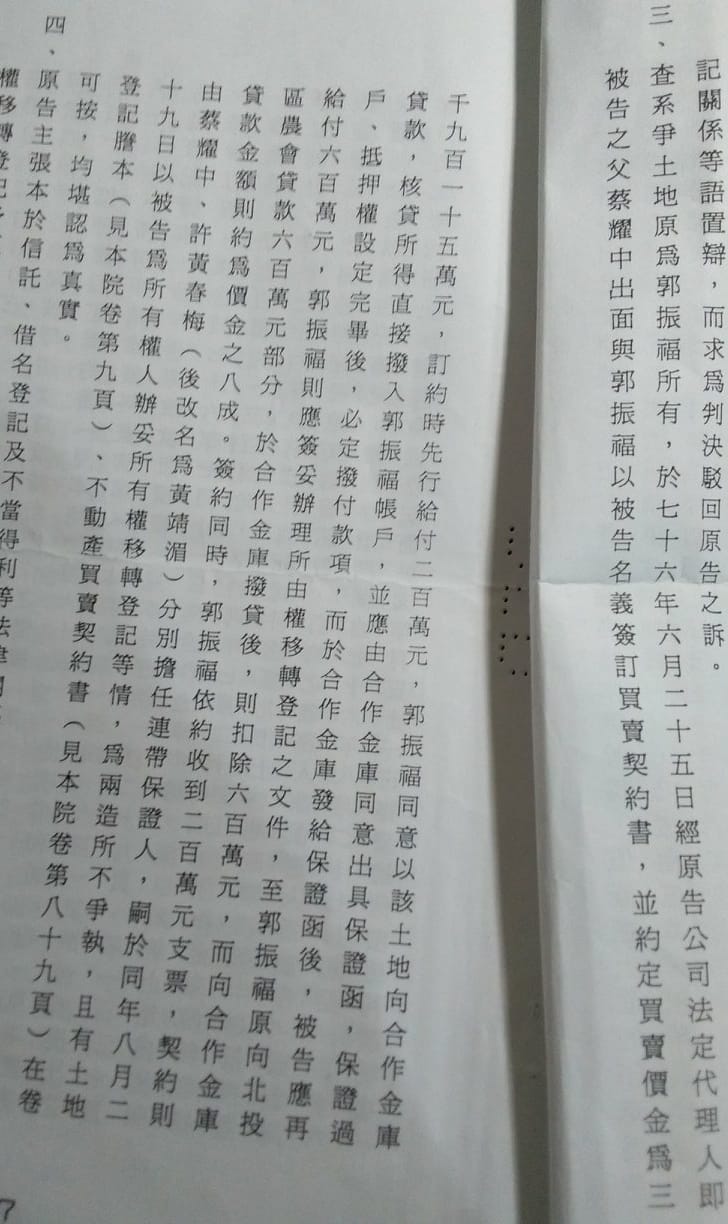 記關係等語置辯，而求為判決駁回原告之訴。
三、查系爭土地原為郭振福所有，於七十六年六月二十五日經原告公司法定代理人即
被告之父蔡耀中出面與郭振福以被告名義簽訂買賣契約書，並約定買賣價金為三
千九百一十五萬元，訂約時先行給付二百萬元，郭振福同意以該土地向合作金庫
貸款，核貸所得直接撥入郭振福帳戶，並應由合作金庫同意出具保證函，保證過
戶、抵押權設定完畢後，必定撥付款項，而於合作金庫發給保證函後，被告應再
給付六百萬元，郭振福則應簽妥辦理所由權移轉登記之文件，至郭振福原向北投
區農會貸款六百萬元部分，於合作金庫撥貸後，則扣除六百萬元，而向合作金庫
貸款金額則約為價金之八成。簽約同時，郭振福依約收到二百萬元支票，契約則
由蔡耀中、許黃春梅（後改名為黃靖湄）分別擔任連帶保證人，嗣於同年八月二
十九日以被告為所有權人辦妥所有權移轉登記等情，為兩造所不爭執，且有土地
登記謄本（見本院卷第九頁）、不動產買賣契約書（見本院卷第八十九頁）在卷
可按，均堪認為真實。
四、原告主張本於信託、借名登記及不當得利等法律
權移轉登記
7